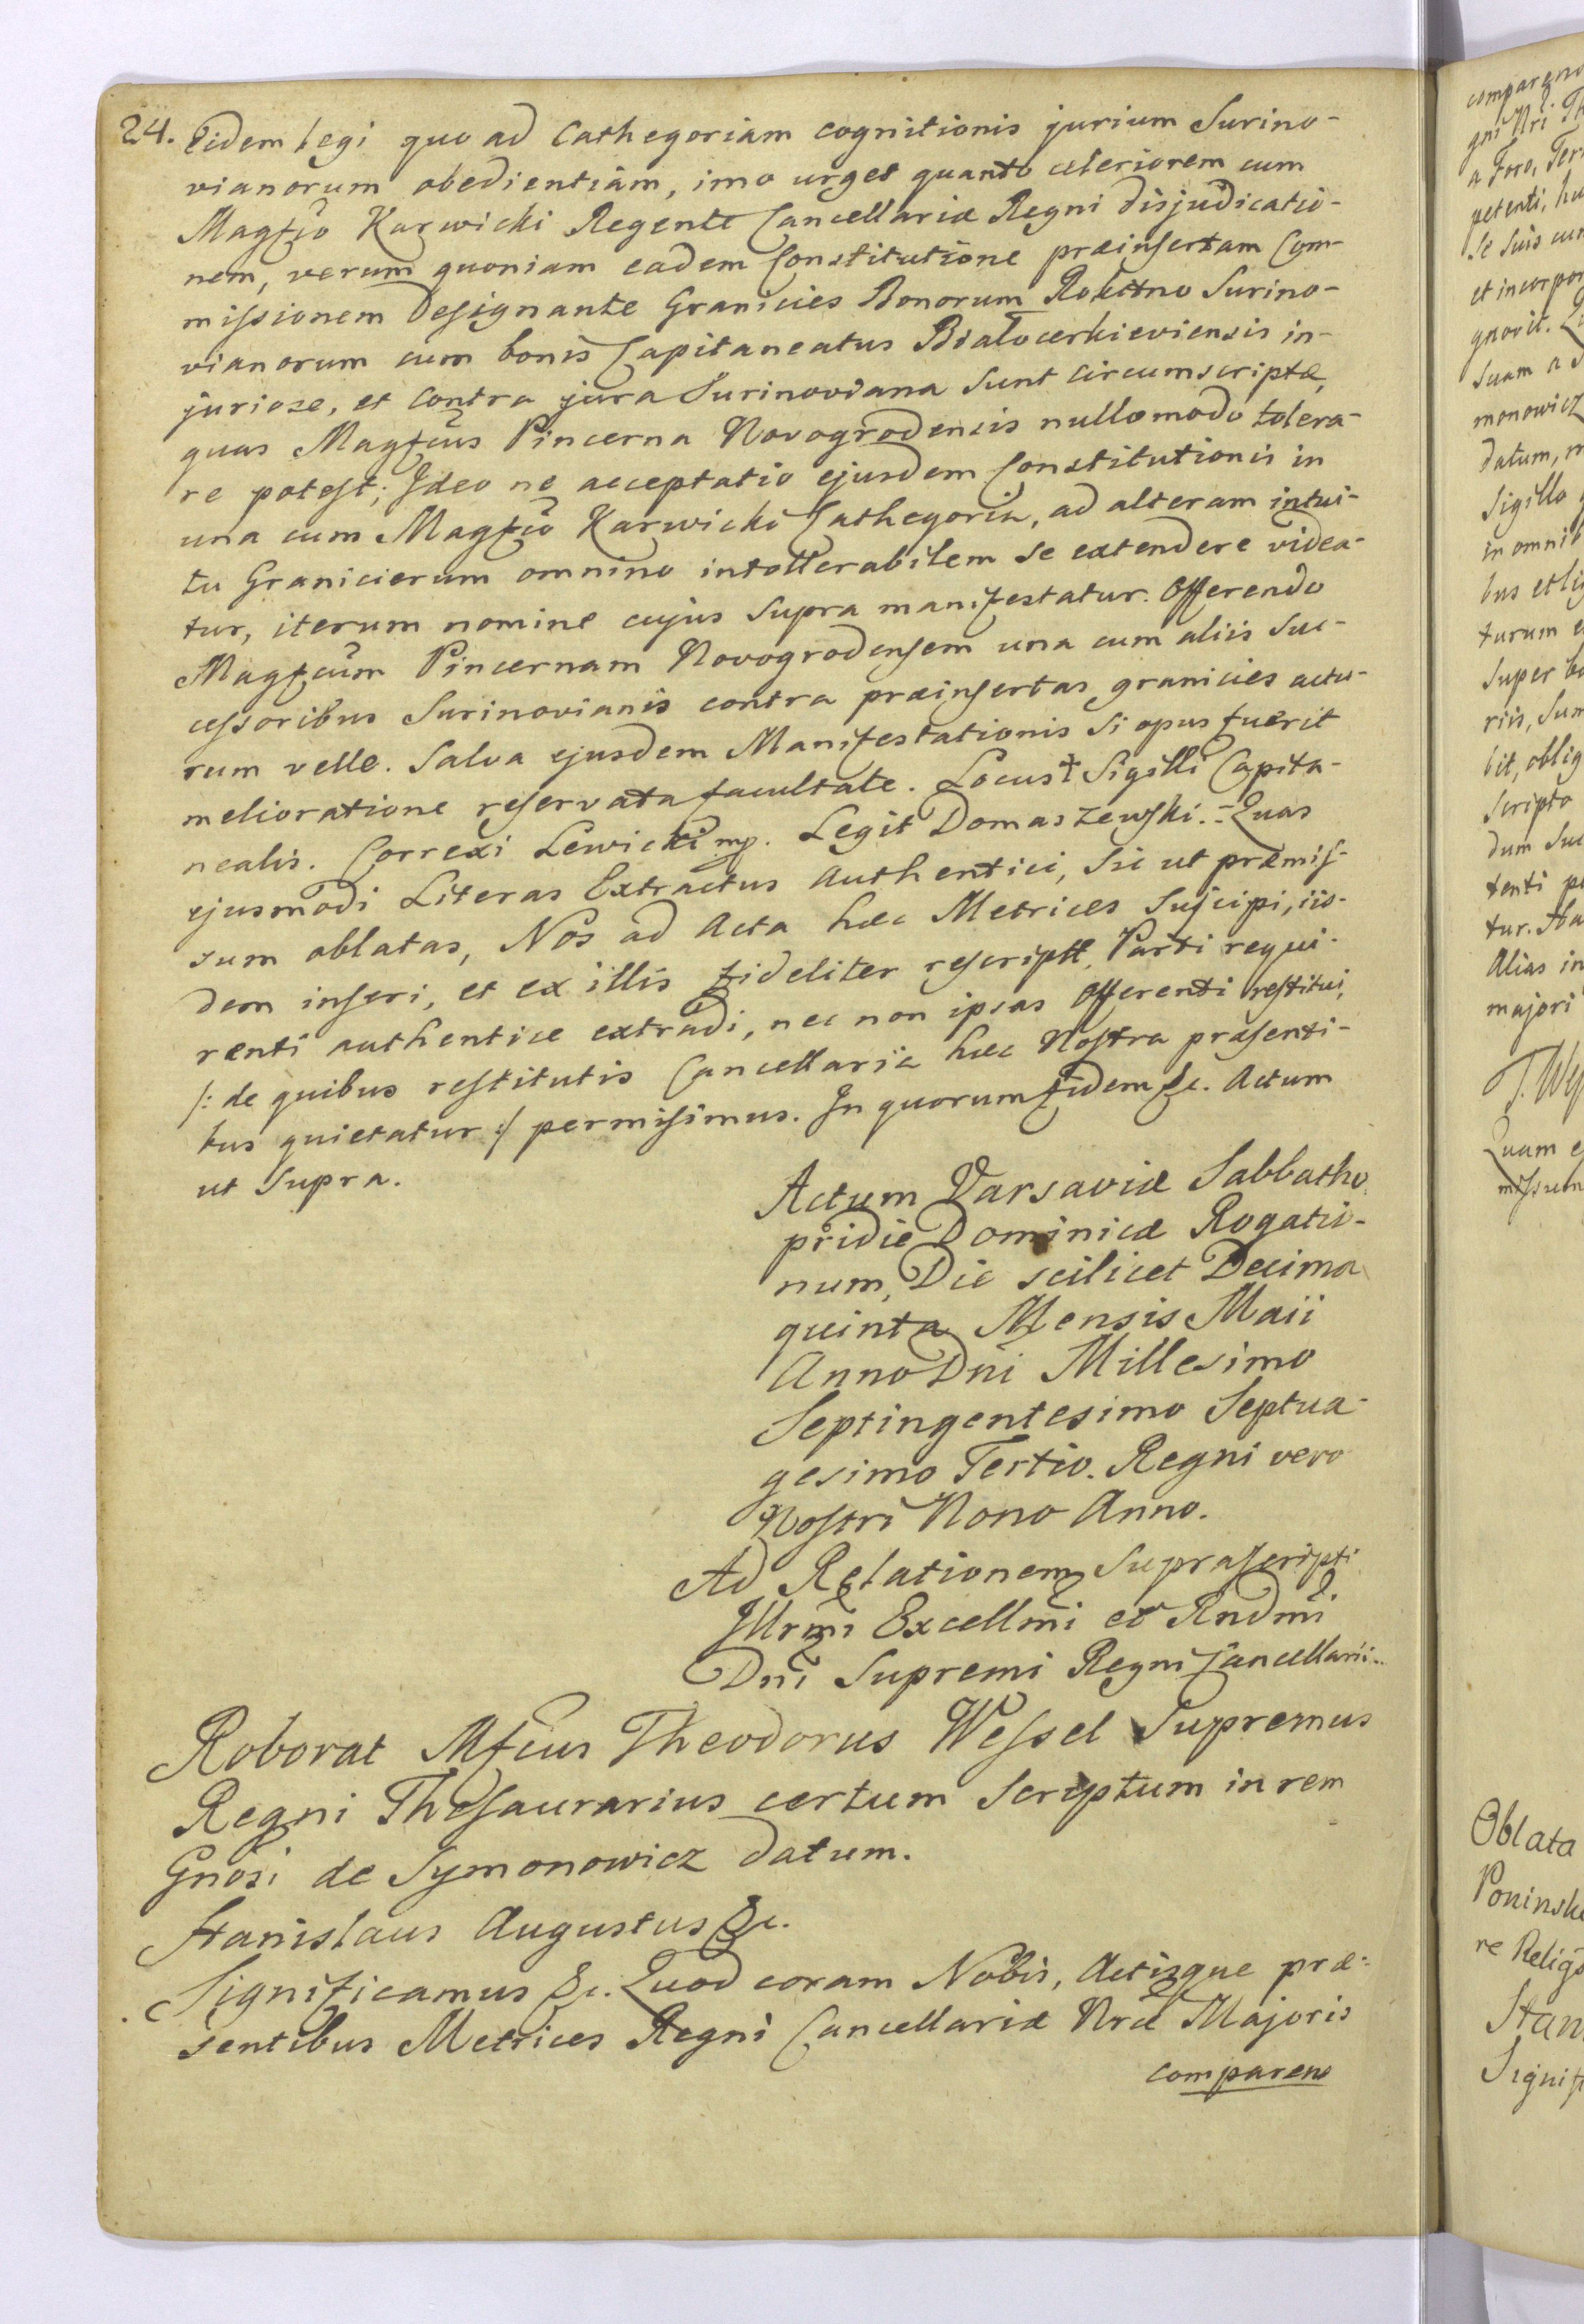 24. Eidem legi quo ad Cathegoriam cognitionis jurium Surino-
vianorum obedientiam, imo urget quanto celeriorem cum
Magfco Karwicki Regente Cancellariæ Regni disjudicatio-
nem, verum quoniam eadem Constitutione præinsertam Com-
missionem Designante Granicies Bonorum Rokitno Surino-
vianorum cum bonis Capitaneatus Białocerkieviensis in-
juriose, et contra jura Surinoviana sunt circumscriptæ,
quas Magfcus Pincerna Novogrodensis nullo modo tolera-
re potest; Ideo ne acceptatio ejusdem Constitutionis in
una cum Magfco Karwicki Cathegoria, ad alteram intui-
tu Granicierum omnino intollerabilem se extendere videa-
tur, iterum nomine cujus supra manifestatur. Offerendo
Magfcum Pincernam Novogrodensem una cum aliis Suc-
cessoribus Surinovianis contra præinsertas granicies actu-
rum velle. Salva ejusdem Manifestationis si opus fuerit
melioratione reservata facultate. Locus † Sigilli Capita-
nealis. Correxi Lewicki mp. Legit Domaszewski. = Quas
ejusmodi Literas Extractus Authentici, sic ut præmis-
sum oblatas, Nos ad Acta hæc Metrices suscipi, iis-
dem inseri, et ex illis fideliter rescriptt. Parti requi-
renti authentice extradi, nec non ipsas Offerenti restitui,
/: de quibus restitutis Cancellaria hæc Nostra præsenti-
bus quietatur :/ permisimus. In quorum fidem &c. Actum
ut supra.
Actum Varsaviæ Sabbatho
pridie Dominicæ Rogatio-
num, Die scilicet Decima
quinta Mensis Maii
Anno Dni Millesimo
Septingentesimo Septua-
gesimo Tertio. Regni vero
Nostri Nono Anno.
Ad Relationem Suprascripti
Illrmi Excellmi et Rndmi
Dni Supremi Regni Cancellarii..
Roborat Mfcus Theodorus Wessel Supremus
Regni Thesaurarius certum Scriptum in rem
Gnosi de Symonowicz datum.
Stanislaus Augustus &c.
Significamus &c. Quod coram Nobis, Actisque præ-
sentibus Metrices Regni Cancellariæ Nræ Majoris
comparens
comparens
gni Nri Th
a Foro, Ter
petenti, hu
se suis cum
et incorpor
gnovit.
suam a
monowicz
datum, m
Sigillo
in omnib
bus et li
turum e
super bo
riis, Sum
bit, oblig
scripto
dum suc
tenti p
tur. Ha
Alias in
majori
T. We
Quam e
missum
Oblata
Poninski
re Religio
Stan
Signif